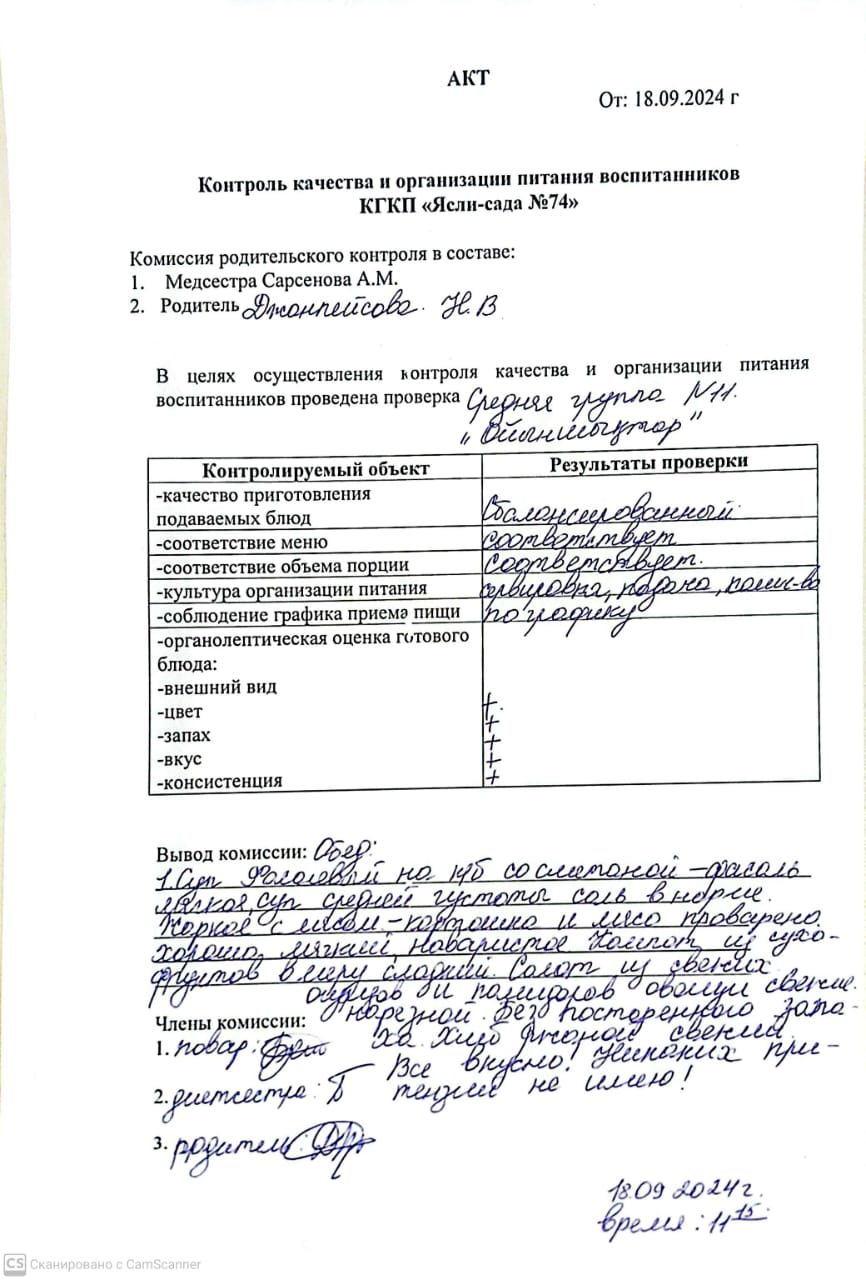 АКТ
От: 18.09.2024 г
Контроль качества и организации питания воспитанников
КГКП «Ясли-сада №74»
Комиссия родительского контроля в составе:
1. Медсестра Сарсенова А.М.
2. Родитель Джанпейсова. Н.В
В целях осуществления контроля качества и организации питания
воспитанников проведена проверка Средняя группа N11.
"Ойыншықтар"
Контролируемый объект Результаты проверки
-качество приготовления
подаваемых блюд Сбалансированный
-соответствие меню соответствует
-соответствие объема порции Соответствует.
-культура организации питания сервировка, подача,
-соблюдение графика приема пищи по графику
-органолептическая оценка готового
блюда:
-внешний вид +.
-цвет +
-запах +
-вкус +
-консистенция +
Вывод комиссии: Обед:
1. Суп Фасолевый на к/б со сметаной – фасоль
мягкая, суп средней густоты соль в норме.
Жаркое с мясом – картошка и мясо проварено
хорошо, мягкий, наваристое Компот из сухо-
фруктов в меру сладкий. Салат из свежих
огурцов и помидоров овощи свежие.
нарезной. Без постороннего запа-
Члены комиссии:
ха. Хлеб ржаной свежий.
1. повар:
Все вкусно! Никаких при-
2. диетсестра: тензий не имею!
3. родитель:
18.09 2024г.
время: 11 15
CS Сканировано с CamScanner